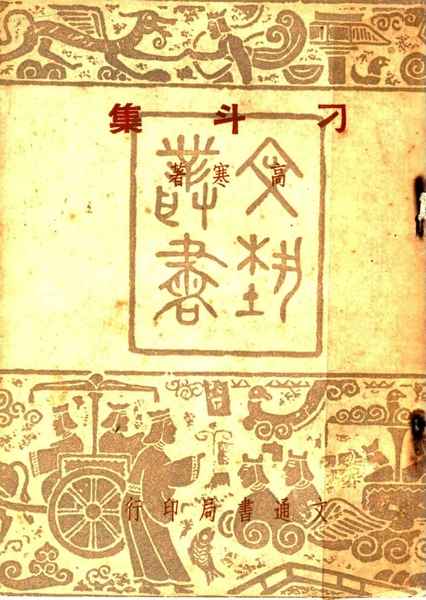 刁斗集
高寒著
文艺丛書
文通書局印行